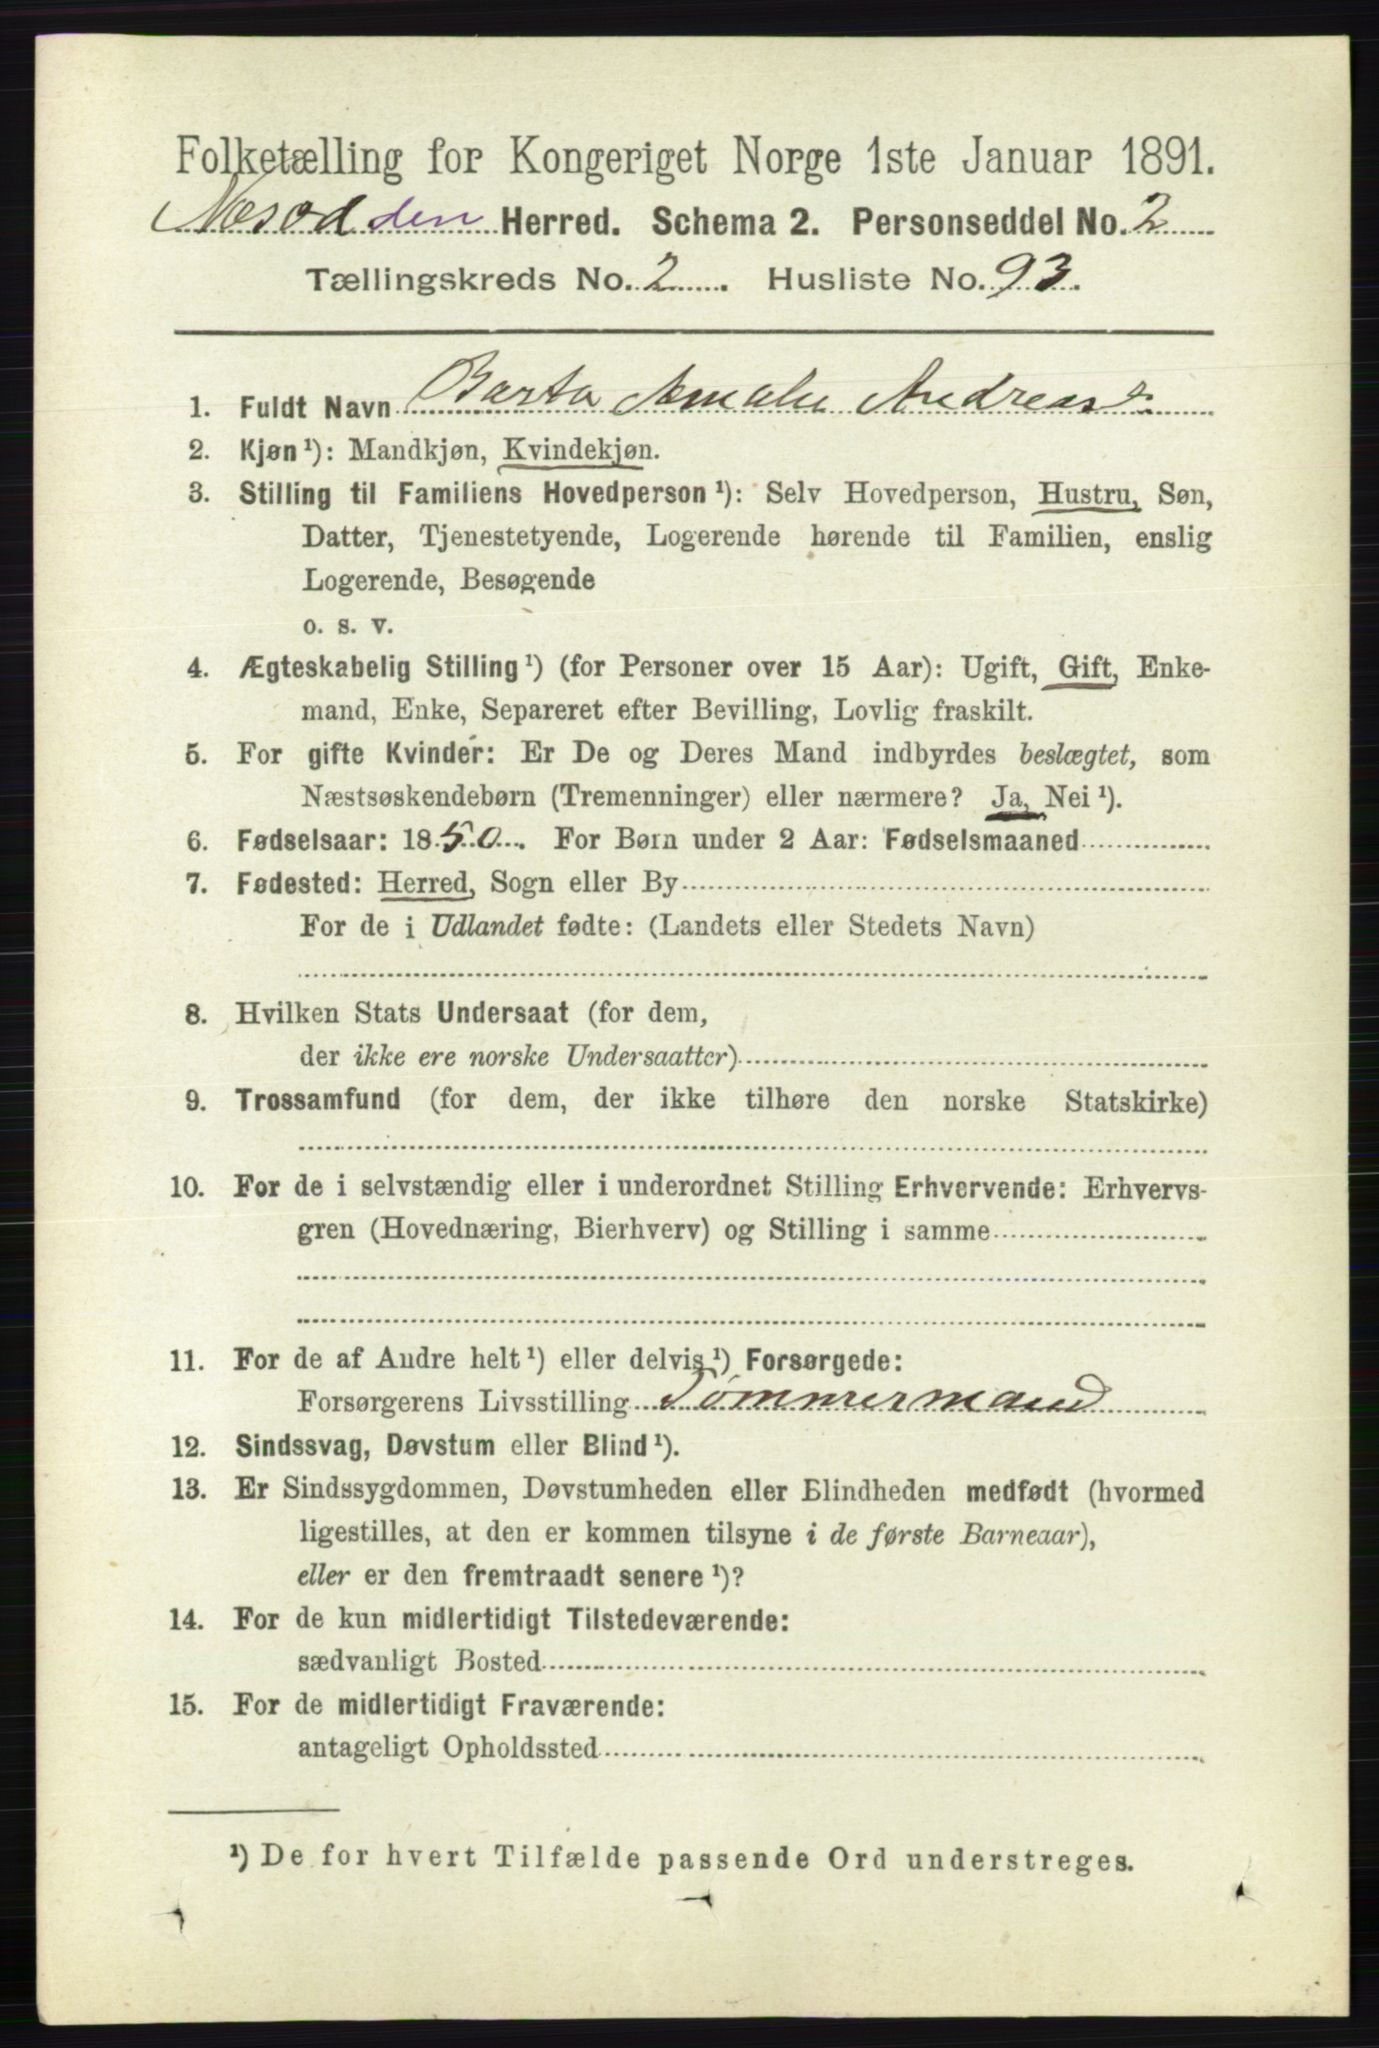 Folketælling for Kongeriget Norge 1ste Januar 1891.
Næsodden Herred. Schema 2. Personseddel No. 2
Tællingskreds No. 2. Husliste No. 93.
1. Fuldt Navn Barta Amalie Andreas
2. Kjøn ¹): Mandkjøn, Kvindekjøn.
3. Stilling til Familiens Hovedperson ¹): Selv Hovedperson, Hustru, Søn,
Datter, Tjenestetyende, Logerende hørende til Familien, enslig
Logerende, Besøgende
o. s. v.
4. Ægteskabelig Stilling ¹) (for Personer over 15 Aar): Ugift, Gift, Enke-
mand, Enke, Separeret efter Bevilling, Lovlig fraskilt.
5. For gifte Kvinder: Er De og Deres Mand indbyrdes beslægtet, som
Næstsøskendebørn (Tremenninger) eller nærmere? Ja, Nei ¹).
6. Fødselsaar: 1850. For Børn under 2 Aar: Fødselsmaaned
7. Fødested: Herred, Sogn eller By
For de i Udlandet fødte: (Landets eller Stedets Navn)
8. Hvilken Stats Undersaat (for dem,
der ikke ere norske Undersaatter)
9. Trossamfund (for dem, der ikke tilhøre den norske Statskirke)
10. For de i selvstændig eller i underordnet Stilling Erhvervende: Erhvervs-
gren (Hovednæring, Bierhverv) og Stilling i samme
11. For de af Andre helt ¹) eller delvis ¹) Forsørgede:
Forsørgerens Livsstilling Tømmermand
12. Sindssvag, Døvstum eller Blind ¹).
13. Er Sindssygdommen, Døvstumheden eller Blindheden medfødt (hvormed
ligestilles, at den er kommen tilsyne i de første Barneaar),
eller er den fremtraadt senere ¹)?
14. For de kun midlertidigt Tilstedeværende:
sædvanligt Bosted
15. For de midlertidigt Fraværende:
antageligt Opholdssted
¹) De for hvert Tilfælde passende Ord understreges.